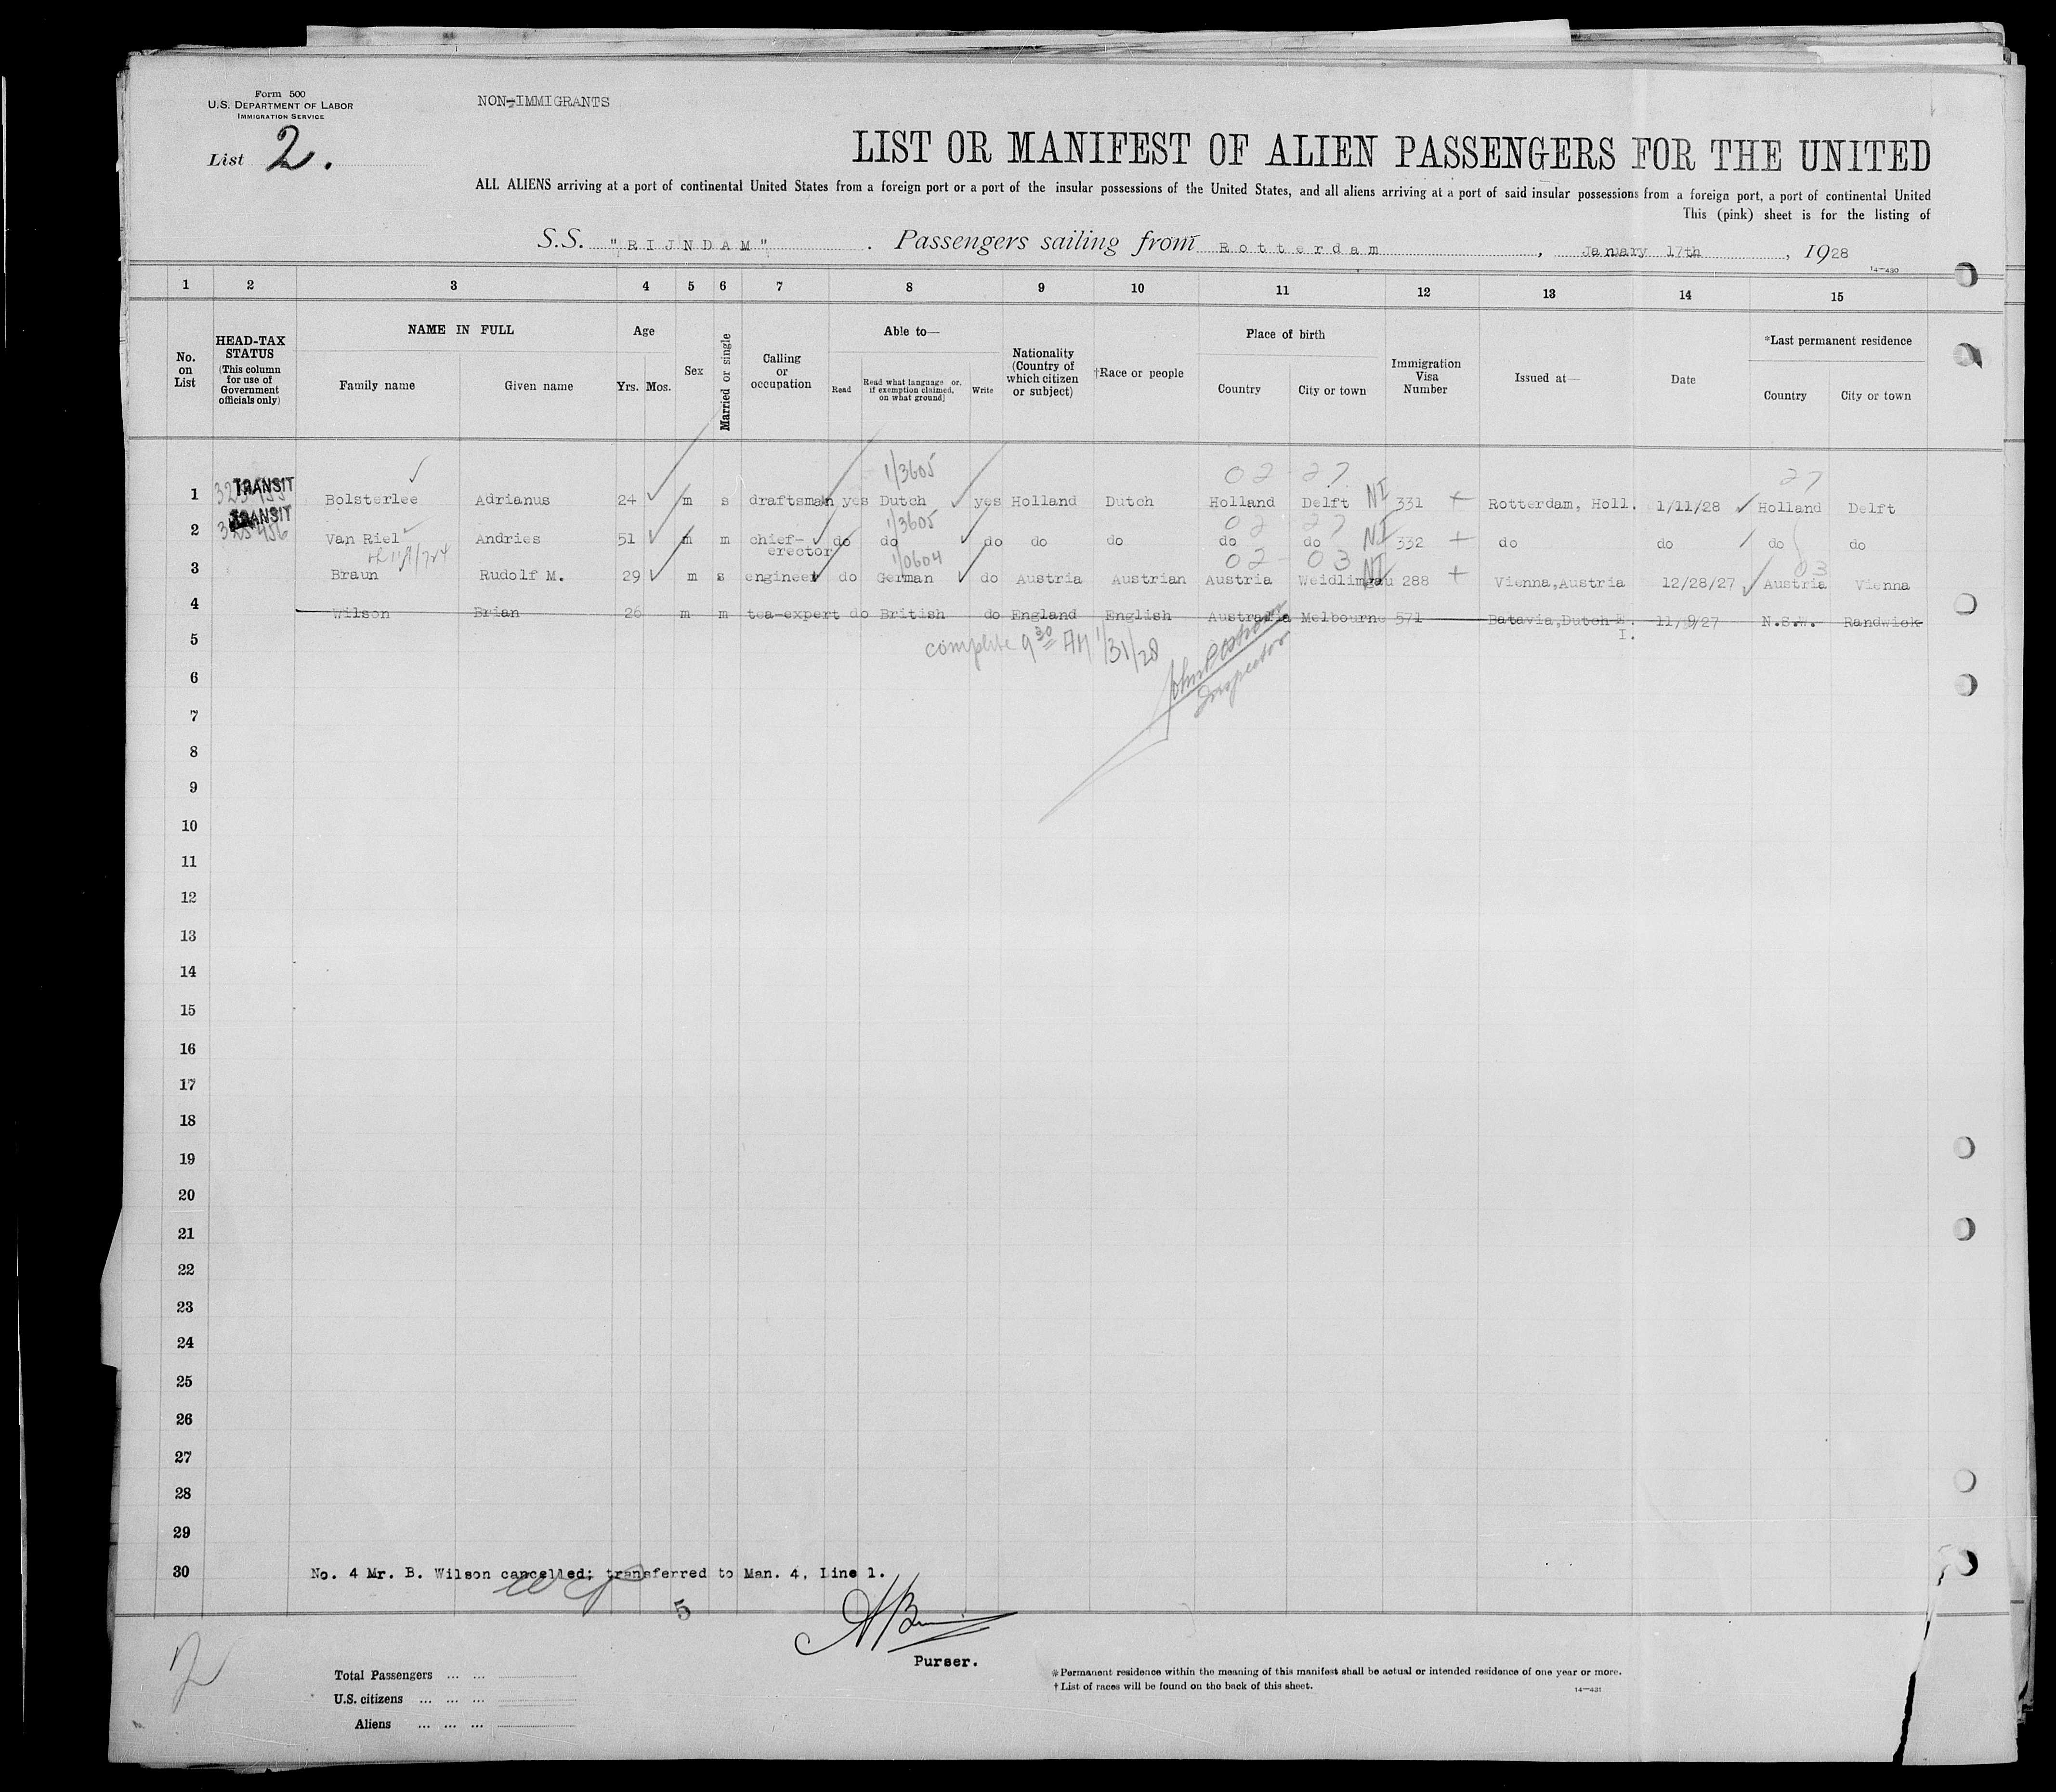 Form 500
U.S. DEPARTMENT OF LABOR
IMMIGRATION SERVICE
NON-IMMIGRANTS
List 2.
LIST OR MANIFEST OF ALIEN PASSENGERS FOR THE UNITED
ALL ALIENS arriving at a port of continental United States from a foreign port or a port of the insular possessions of the United States, and all aliens arriving at a port of said insular possessions from a foreign port, a port of continental United
This (pink) sheet is for the listing of
S.S. "RIJNDAM". Passengers sailing from Rotterdam, January 17th, 1928
14-430
1 2 3 4 5 6 7 8 9 10 11 12 13 14 15
No. on List
HEAD-TAX STATUS (This column for use of Government officials only)
NAME IN FULL
Family name Given name
Age
Yrs. Mos.
Sex
Married or single
Calling or occupation
Able to—
Read Read what language or, if exemption claimed, on what ground] Write
Nationality (Country of which citizen or subject)
†Race or people
Place of birth
Country City or town
Immigration Visa Number
Issued at—
Date
*Last permanent residence
Country City or town
1/3605 02-27 27
1 TRANSIT Bolsterlee Adrianus 24 m s draftsman yes Dutch yes Holland Dutch Holland Delft NI 331 + Rotterdam, Holl. 1/11/28 Holland Delft
1/3605 02 27
2 TRANSIT Van Riel Andries 51 m m chief-erector do do do do do do do NI 332 + do do do do
1/0604 02-03 03
3 Braun Rudolf M. 29 m s engineer do German do Austria Austrian Austria Weidlingau NI 288 + Vienna,Austria 12/28/27 Austria Vienna
4 Wilson Brian 26 m m tea-expert do British do England English Australia Melbourne 571 Batavia,Dutch E. I. 11/9/27 N.S.W. Randwick
complete 9 30 AM 1/31/28
Inspector
5
6
7
8
9
10
11
12
13
14
15
16
17
18
19
20
21
22
23
24
25
26
27
28
29
30 No. 4 Mr. B. Wilson cancelled; transferred to Man. 4, Line 1.
5
Purser.
2
Total Passengers ... ...
U.S. citizens ... ... ...
Aliens ... ... ...
*Permanent residence within the meaning of this manifest shall be actual or intended residence of one year or more.
†List of races will be found on the back of this sheet.
14-431